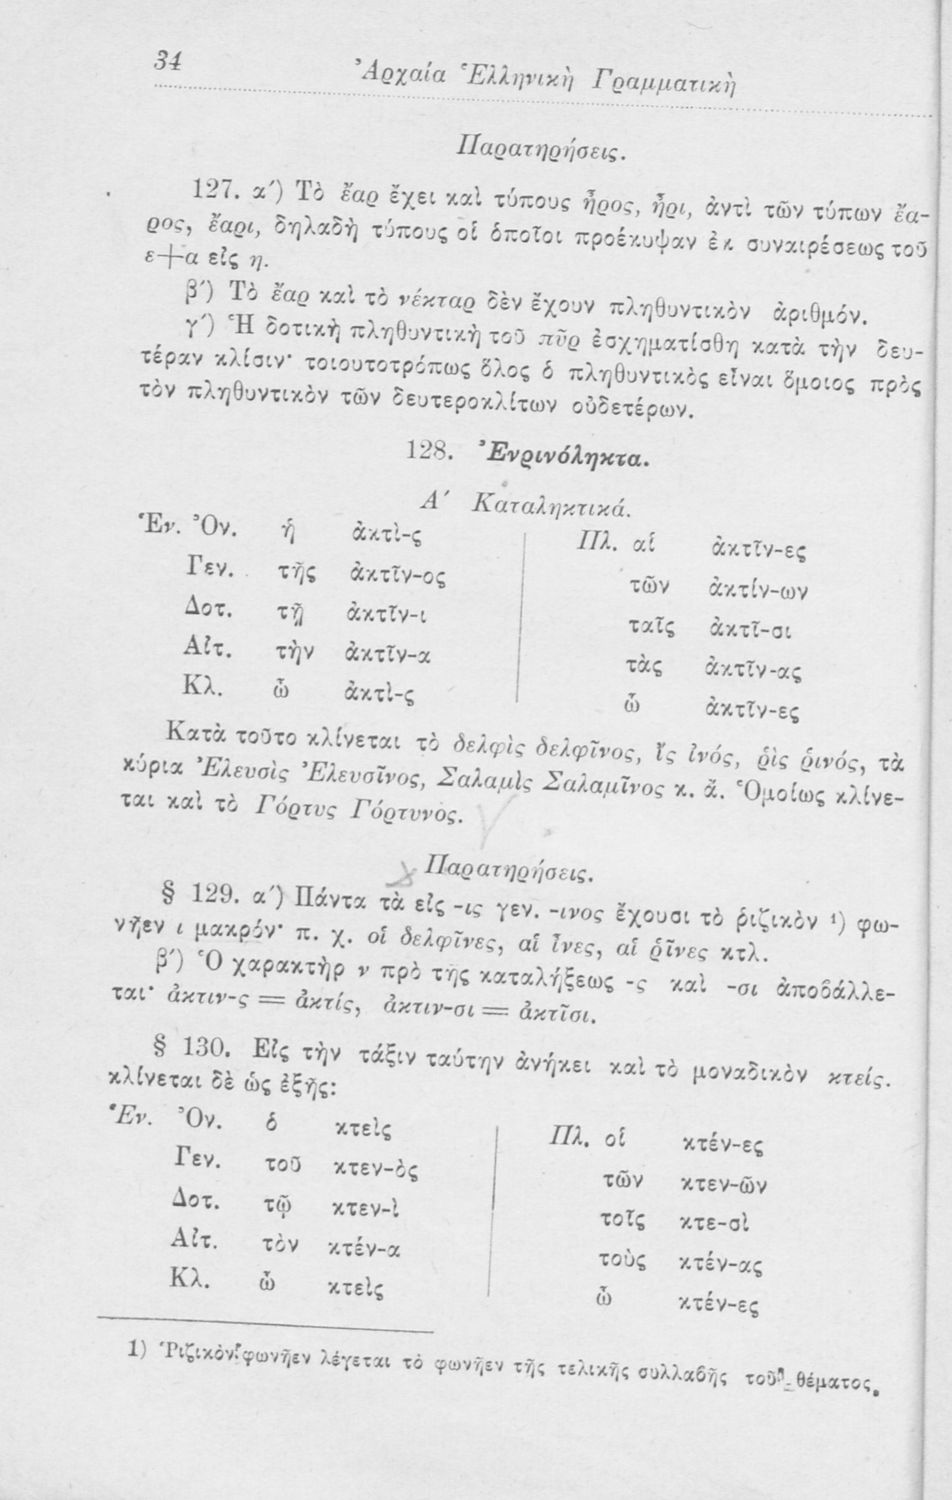 34
Ἀρχαία Ἑλληνικὴ Γραμματικὴ
Παρατηρήσεις.
127. α′) Τὸ ἔαρ ἔχει καὶ τύπους ἦρος, ἦρι, ἀντὶ τῶν τύπων ἔα-
ρος, ἔαρι, δηλαδὴ τύπους οἱ ὁποῖοι προέκυψαν ἐκ συναιρέσεως τοῦ
ε+α εἰς η.
β′) Τὸ ἔαρ καὶ τὸ νέκταρ δὲν ἔχουν πληθυντικὸν ἀριθμόν.
γ′) Ἡ δοτικὴ πληθυντικὴ τοῦ πῦρ ἐσχηματίσθη κατὰ τὴν δευ-
τέραν κλίσιν· τοιουτοτρόπως ὅλος ὁ πληθυντικὸς εἶναι ὅμοιος πρὸς
τὸν πληθυντικὸν τῶν δευτεροκλίτων οὐδετέρων.
128. Ἐνρινόληκτα.
Α′ Καταληκτικά.
Ἑν. Ὀν. ἡ ἀκτὶ-ς Πλ. αἱ ἀκτῖν-ες
Γεν. τῆς ἀκτῖν-ος τῶν ἀκτίν-ων
Δοτ. τῇ ἀκτῖν-ι ταῖς ἀκτῖ-σι
Αἰτ. τὴν ἀκτῖν-α τὰς ἀκτῖν-ας
Κλ. ὦ ἀκτὶ-ς ὦ ἀκτῖν-ες
Κατὰ τοῦτο κλίνεται τὸ δελφὶς δελφῖνος, ἲς ἰνός, ῥὶς ῥινός, τὰ
κύρια Ἐλευσὶς Ἐλευσῖνος, Σαλαμὶς Σαλαμῖνος κ. ἄ. Ὁμοίως κλίνε-
ται καὶ τὸ Γόρτυς Γόρτυνος.
Παρατηρήσεις.
§ 129. α′) Πάντα τὰ εἰς -ις γεν. -ινος ἔχουσι τὸ ῥιζικὸν ¹) φω-
νῆεν ι μακρόν· π. χ. οἱ δελφῖνες, αἱ ἶνες, αἱ ῥῖνες κτλ.
β′) Ὁ χαρακτὴρ ν πρὸ τῆς καταλήξεως -ς καὶ -σι ἀποβάλλε-
ται· ἀκτιν-ς = ἀκτίς, ἀκτιν-σι = ἀκτῖσι.
§ 130. Εἰς τὴν τάξιν ταύτην ἀνήκει καὶ τὸ μοναδικὸν κτείς.
κλίνεται δὲ ὡς ἐξῆς:
Ἑν. Ὀν. ὁ κτεὶς Πλ. οἱ κτέν-ες
Γεν. τοῦ κτεν-ὸς τῶν κτεν-ῶν
Δοτ. τῷ κτεν-ὶ τοῖς κτε-σὶ
Αἰτ. τὸν κτέν-α τοὺς κτέν-ας
Κλ. ὦ κτεὶς ὦ κτέν-ες
1) Ῥιζικὸν φωνῆεν λέγεται τὸ φωνῆεν τῆς τελικῆς συλλαβῆς τοῦ θέματος.